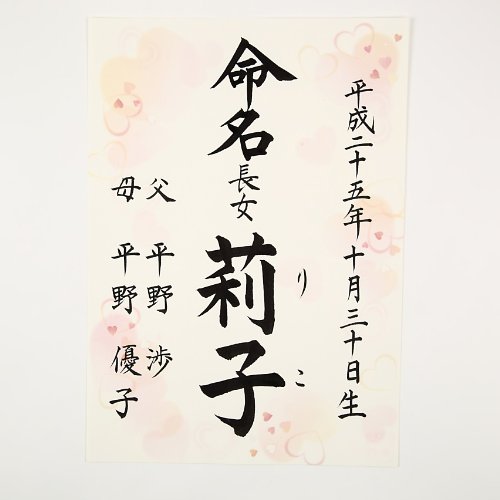 平成二十五年十月三十日生
命名
長女
莉子
りこ
父 平野 渉
母 平野 優子